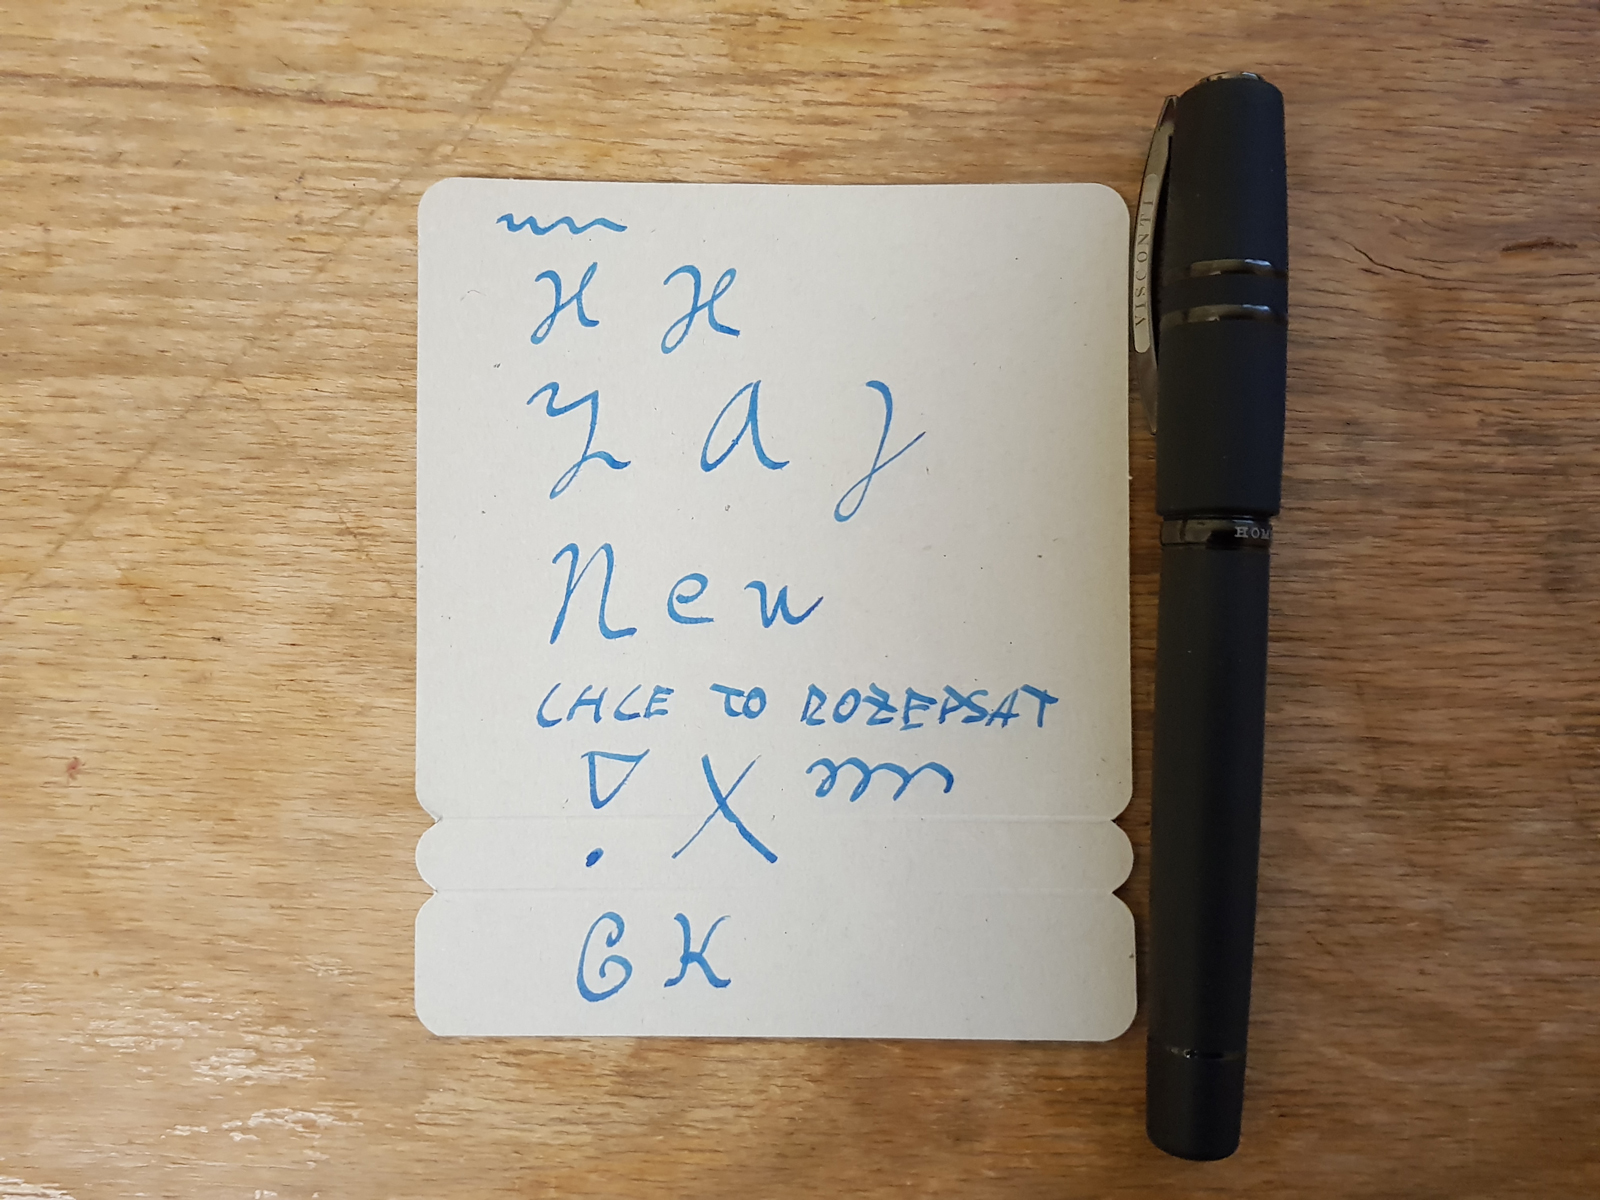 H H
Y A J
New
CHCE TO ROZEPSAT
X
G K
VISCONTI
HOM